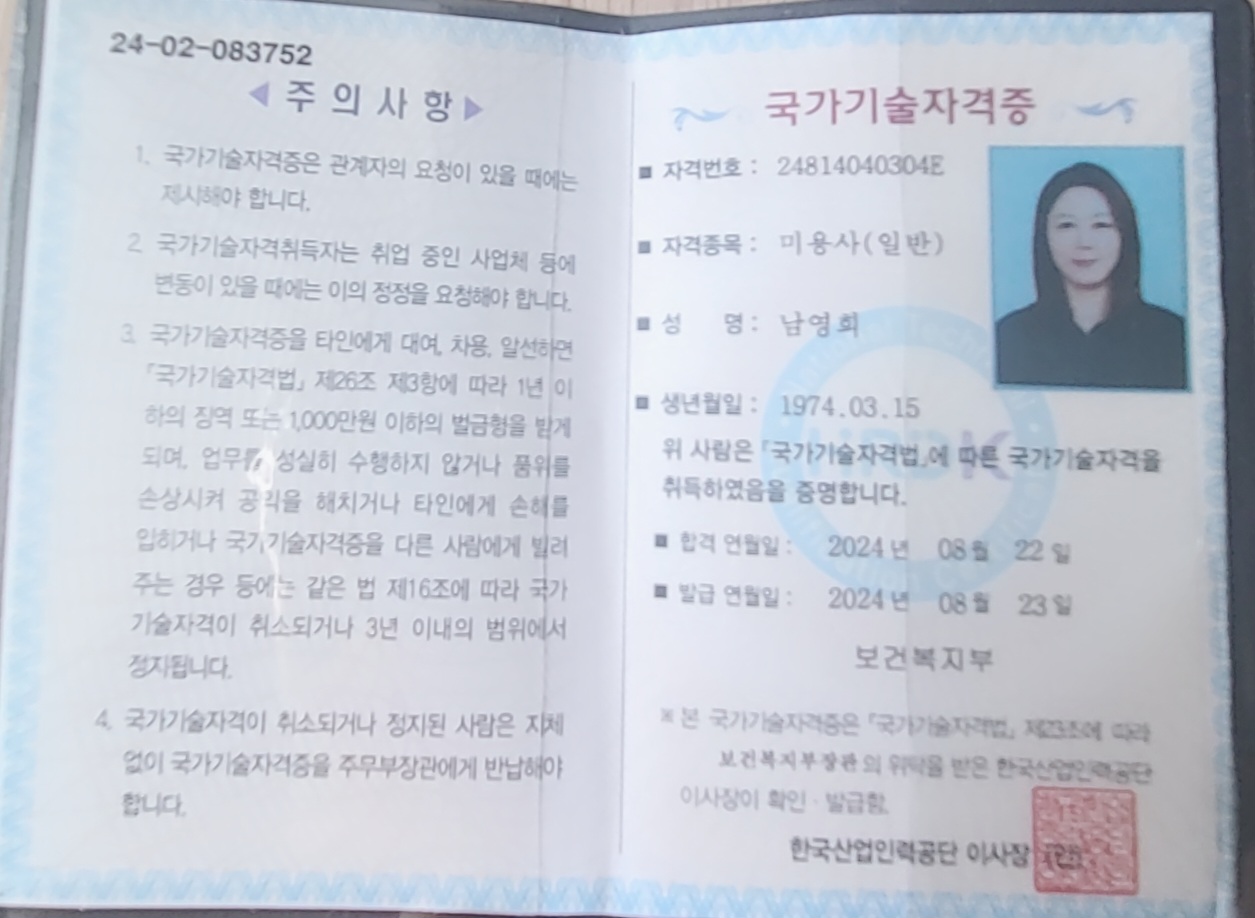 24-02-083752
◀ 주 의 사 항 ▶
1. 국가기술자격증은 관계자의 요청이 있을 때에는
제시해야 합니다.
2. 국가기술자격취득자는 취업 중인 사업체 등에
변동이 있을 때에는 이의 정정을 요청해야 합니다.
3. 국가기술자격증을 타인에게 대여, 차용, 알선하면
「국가기술자격법」 제26조 제3항에 따라 1년 이
하의 징역 또는 1,000만원 이하의 벌금형을 받게
되며, 업무를 성실히 수행하지 않거나 품위를
손상시켜 공익을 해치거나 타인에게 손해를
입히거나 국가기술자격증을 다른 사람에게 빌려
주는 경우 등에는 같은 법 제16조에 따라 국가
기술자격이 취소되거나 3년 이내의 범위에서
정지됩니다.
4. 국가기술자격이 취소되거나 정지된 사람은 지체
없이 국가기술자격증을 주무부장관에게 반납해야
합니다.
국가기술자격증
■ 자격번호 : 24814040304E
■ 자격종목 : 미용사(일반)
■ 성 명 : 남영희
■ 생년월일 : 1974.03.15
위 사람은 「국가기술자격법」에 따른 국가기술자격을
취득하였음을 증명합니다.
■ 합격 연월일 : 2024 년 08 월 22 일
■ 발급 연월일 : 2024 년 08 월 23 일
보건복지부
※ 본 국가기술자격증은 「국가기술자격법」 제23조에 따라
보건복지부장관의 위탁을 받은 한국산업인력공단
이사장이 확인·발급함.
한국산업인력공단 이사장